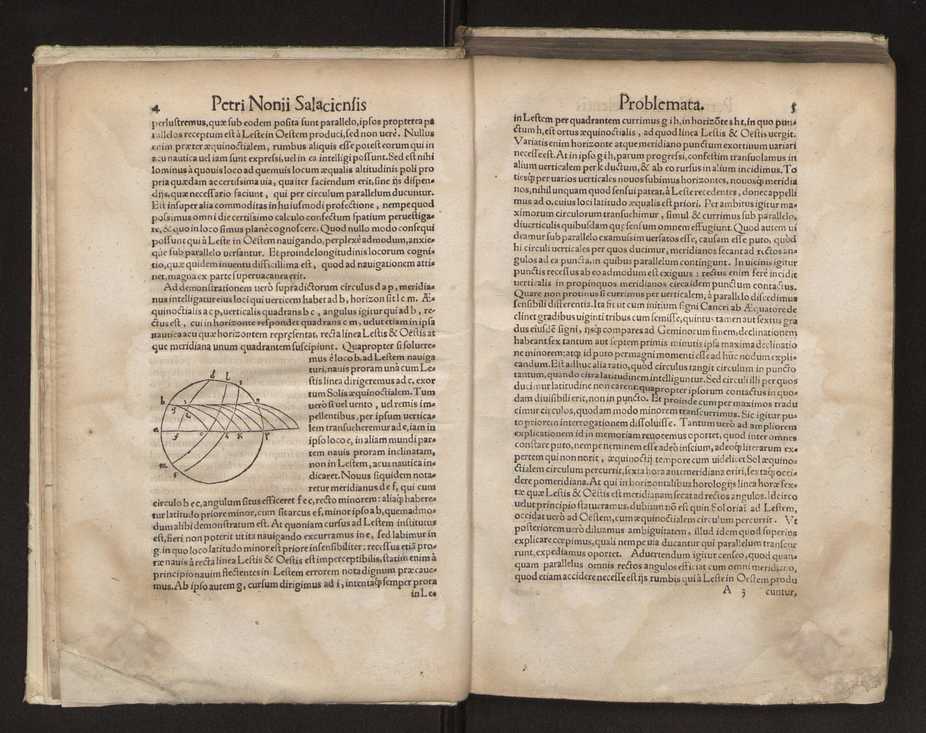 4 Petri Nonii Salaciensis
perlustremus, quæ sub eodem posita sunt parallelo, ipsos propterea pa
rallelos receptum est à Leste in Oestem produci, sed non uerè. Nullus
enim præter æquinoctialem, rumbus aliquis esse potest eorum qui in
acu nautica uel iam sunt expressi, uel in ea intelligi possunt. Sed est nihi
lominus à quouis loco ad quemuis locum æqualis altitudinis poli pro
pria quædam accertissima uia, qua iter faciendum erit, sine ijs dispen-
dijs, quæ necessario faciunt, qui per circulum parallelum ducuntur.
Est insuper alia commoditas in huiusmodi profectione, nempe quod
possimus omni die certissimo calculo confectum spatium peruestiga-
re, & quo in loco simus planè cognoscere. Quod nullo modo consequi
possunt qui à Leste in Oestem nauigando, perplexè admodum, anxie-
que sub parallelo uersantur. Et proinde longitudinis locorum cogni-
tio, quæ quidem inuentu difficillima est, quod ad nauigationem atti-
net, magna ex parte superuacanea erit.
Ad demonstrationem uerò supradictorum circulus d a p, meridia-
nus intelligatur eius loci qui uerticem habet ad b, horizon sit l c m. Æ-
quinoctialis a c p, uerticalis quadrans b c, angulus igitur qui ad b, re-
ctus est, cui in horizonte respondet quadrans c m, uelut etiam in ipsa
nautica acu quæ horizontem repręsentat, recta linea Lestis & Oestis at
que meridiana unum quadrantem suscipiunt. Quapropter si soluere-
mus è loco b, ad Lestem nauiga
turi, nauis proram unà cum Le-
stis linea dirigeremus ad c, exor
tum Solis æquinoctialem. Tum
uerò si uel uento, uel remis im-
pellentibus, per ipsum uertica-
lem transueheremur ad e, iam in
ipso loco e, in aliam mundi par-
tem nauis proram inclinatam,
non in Lestem, acus nautica in-
dicaret. Nouus siquidem nota-
retur meridianus d e f, qui cum
circulo b e c, angulum situs efficeret f e c, recto minorem: aliaq́ habere-
tur latitudo priore minor, cum sit arcus e f, minor ipso a b, quemadmo-
dum alibi demonstratum est. At quoniam cursus ad Lestem institutus
est, fieri non poterit ut ita nauigando excurramus in e, sed labimur in
g, in quo loco latitudo minor est priore insensibiliter: recessus etiã pro-
ræ nauis à recta linea Lestis & Oestis est imperceptibilis, statim enim à
principio nauim flectentes in Lestem errorem nota dignum præcaue-
mus. Ab ipso autem g, cursum dirigimus ad i, intentaq́ semper prora
in Les
Problemata. 5
in Lestem per quadrantem currimus g i h, in horizõtes h t, in quo pun-
ctum h, est ortus æquinoctialis, ad quod linea Lestis & Oestis uergit.
Variatis enim horizonte atque meridiano punctum exortiuum uariari
necesse est. At in ipso g i h, parum progressi, confestim transuolamus in
alium uerticalem per k ductum, & ab eo rursus in alium incidimus. To
tiesq́ per uarios uerticales nouos subimus horizontes, nouosq́ meridia
nos, nihil unquam quod sensui pateat, à Leste recedentes, donec appelli
mus ad o, cuius loci latitudo æqualis est priori. Per ambitus igitur ma
ximorum circulorum transuehimur, simul & currimus sub parallelo,
diuerticulis quibusdam quę sensum omnem effugiunt. Quod autem ui
deamur sub parallelo examussim uersatos esse, causam esse puto, quòd
hi circuli uerticales per quos ducimur, meridianos secant ad rectos an-
gulos ad ea puncta, in quibus parallelum contingunt. In uicinis igitur
punctis recessus ab eo admodum est exiguus: rectus enim ferè incidit
uerticalis in propinquos meridianos circa idem punctum contactus.
Quare non protinus si currimus per uerticalem, à parallelo discedimus
sensibili differentia. Ita fit ut cum initium signi Cancri ab Æquatore de
clinet gradibus uiginti tribus cum semisse, quintus tamen aut sextus gra
dus eiusdē signi, ijsq́ compares ad Geminorum finem, declinationem
habeant sex tantum aut septem primis minutis ipsa maxima declinatio
ne minorem: atq́ id puto permagni momenti esse ad hûc nodum expli-
candum. Est adhuc alia ratio, quòd circulus tangit circulum in puncto
tantum, quando citra latitudinem intelliguntur. Sed circuli illi per quos
ducimur latitudine non carent: quapropter ipsorum contactus in quo-
dam diuisibili erit, non in puncto. Et proinde cum per maximos tradu
cimur circulos, quodam modo minorem transcurrimus. Sic igitur pu-
to priorem interrogationem dissoluisse. Tantum uerò ad ampliorem
explicationem id in memoriam reuocemus oportet, quod inter omnes
constare puto, nempe neminem esse adeò inscium, adeoq́ literarum ex-
pertem qui non norit, æquinoctij tempore cum uidelicet Sol æquino-
ctialem circulum percurrit, sexta hora antemeridiana oriri, sextaq́ occi
dere pomeridiana. At qui in horizontalibus horologijs linea horæ sex-
tæ quæ Lestis & Oestis est meridianam secat ad rectos angulos. Idcirco
uelut principio staturamus, dubium nõ est quin Sol oriat̃ ad Lestem,
occidat uerò ad Oestem, cum æquinoctialem circulum percurrit. Vt
posteriorem uerò diluamus ambiguitatem, illud idem quod superius
explicare cœpimus, quali nempe uia ducantur qui parallelum transcur
runt, expediamus oportet. Aduertendum igitur censeo, quod quan-
quam parallelus omnis rectos angulos efficiat cum omni meridiano,
quod etiam accidere necesse est ijs rumbis qui à Leste in Oestem produ
A 3 cuntur,